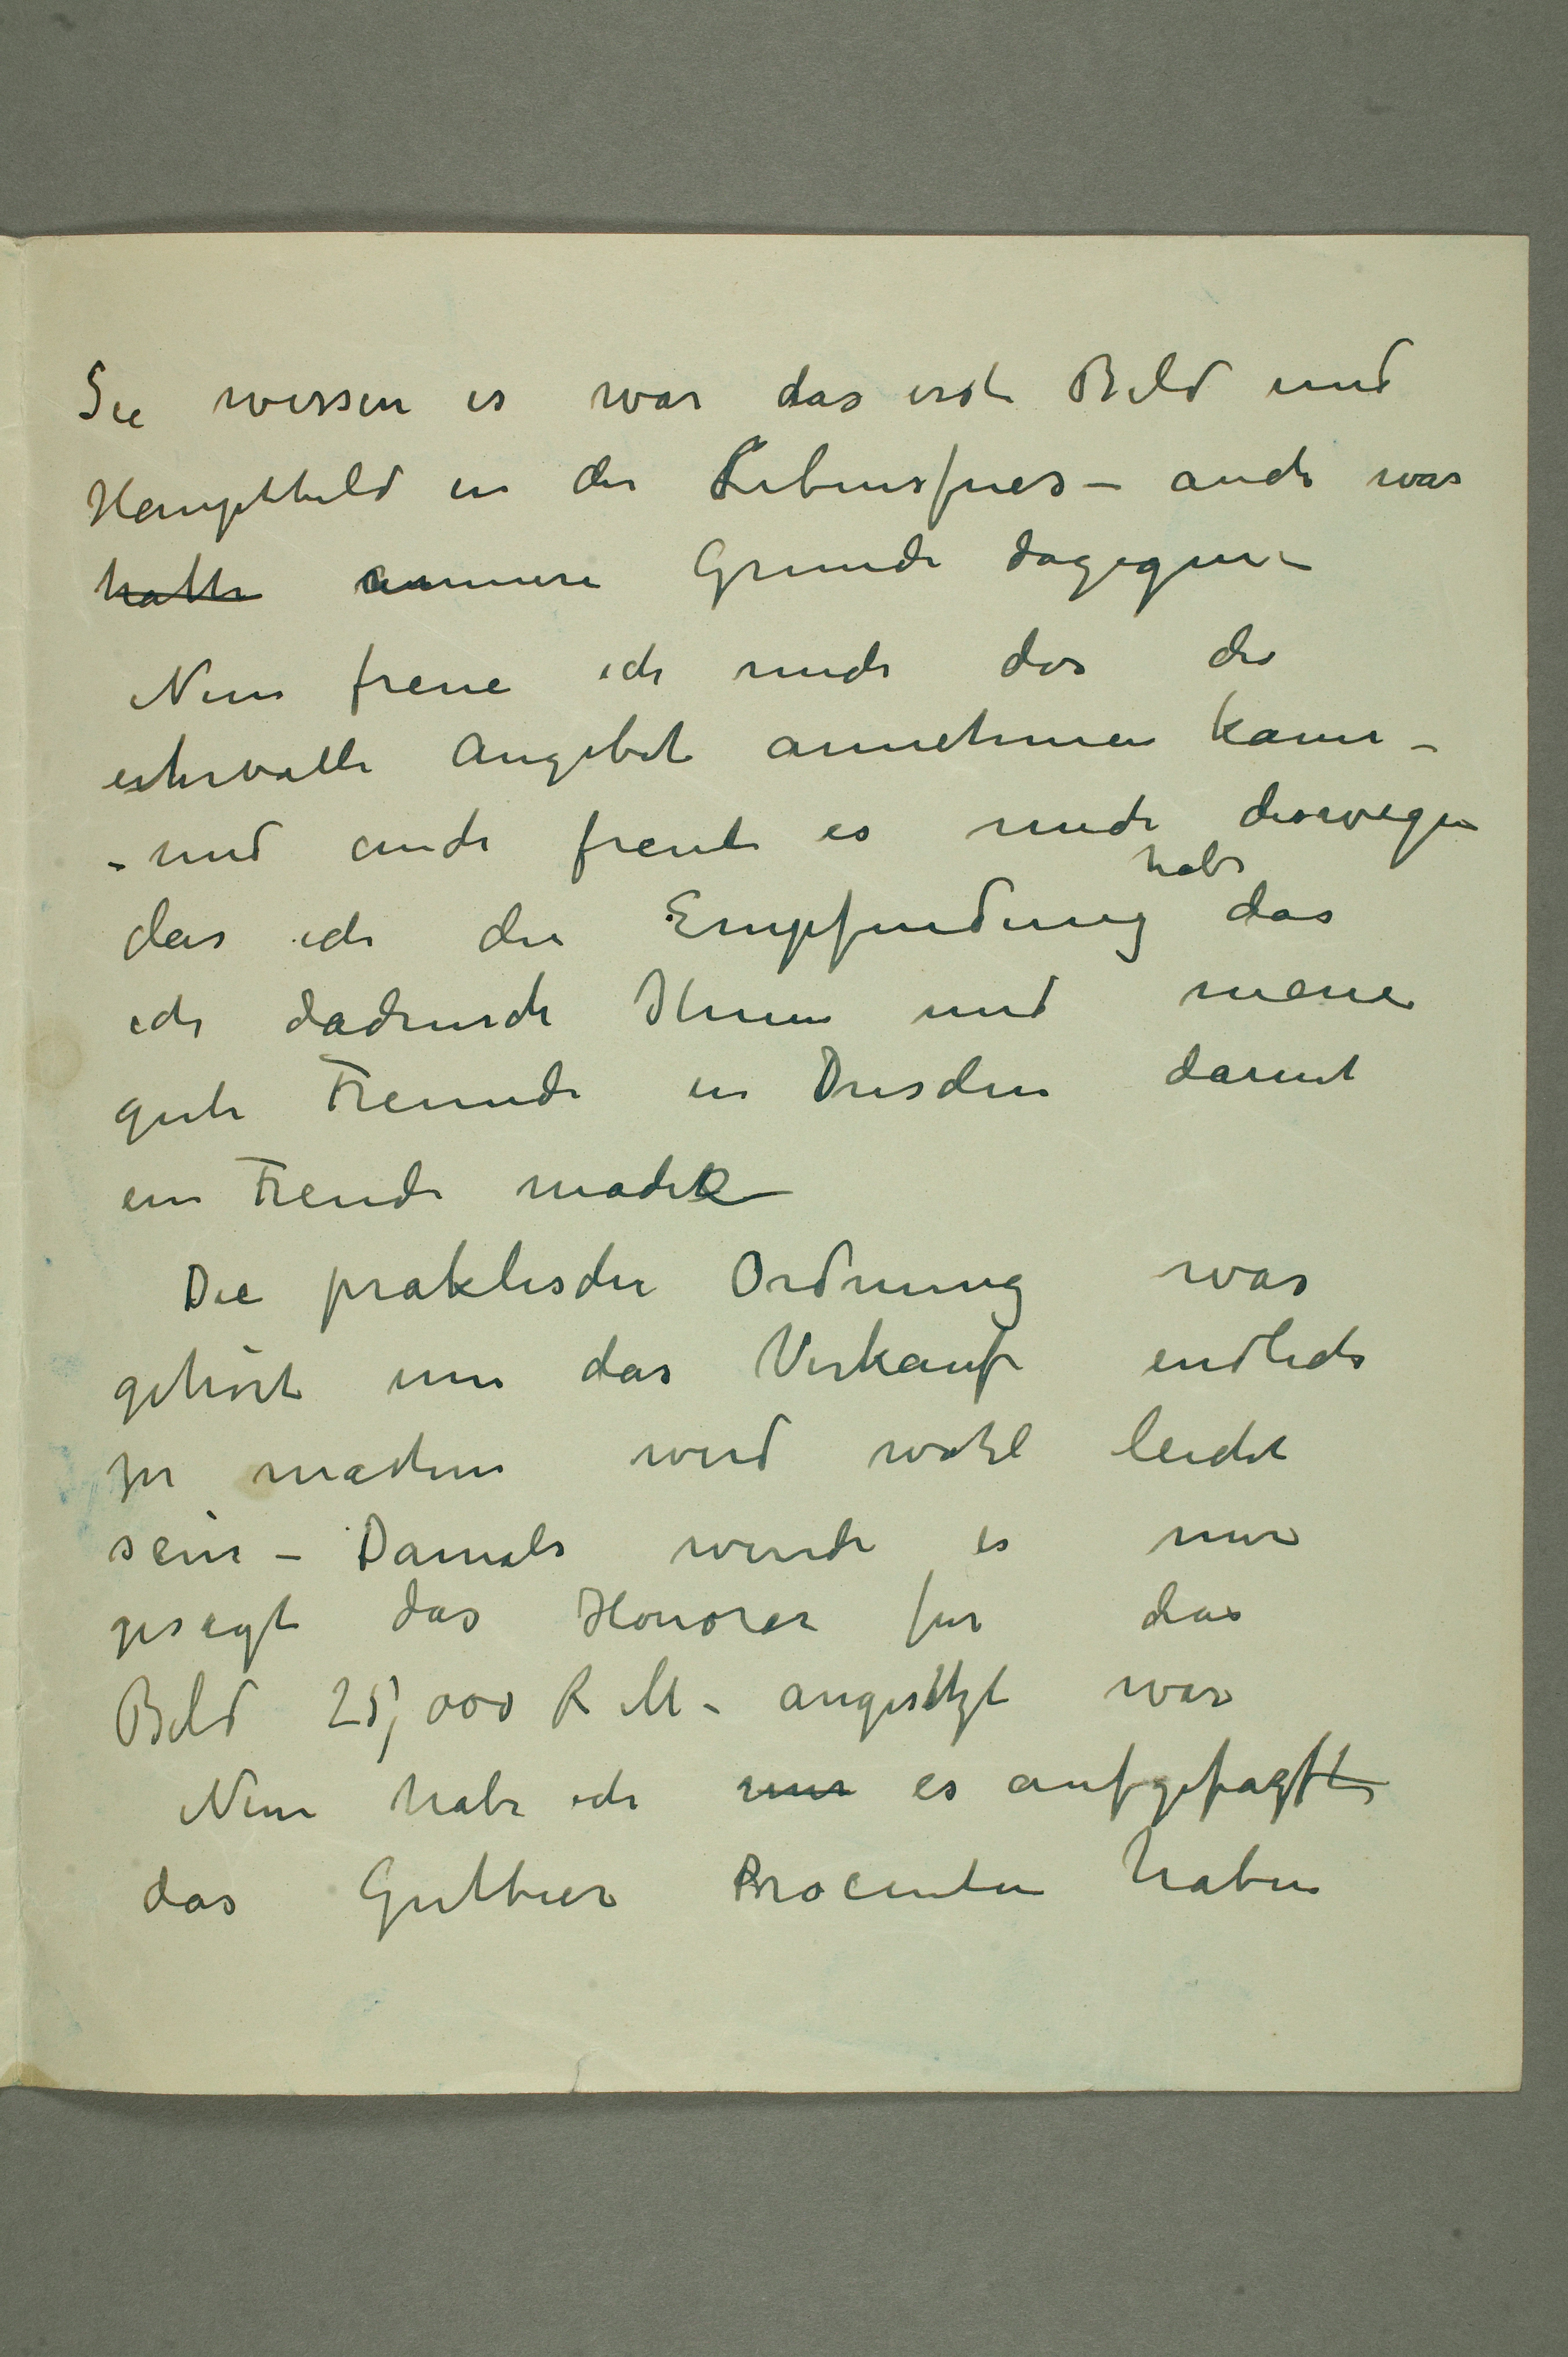 Sie wissen es war das erste Bild und
Hauptbild in der Lebensfries – auch war
hatte innere Grunde dagegen –
Nun freue ich mich das die
ehrvolle Angebot annehmen kann –
– und auch freut es mich deswegen
das ich die Empfindung habe das
ich dadurch Ihnen und meine
gute Freunde in Dresden damit
ein Freude mache –
Die praktische Ordnung was
gehört um das Verkauf endlich
zu machen wird wohl leicht
sein – Damals wurde es mir
gesagt das Honorar fur das
Bild 25,000 R M – angesetzt war
Nun habe ich nur es aufgefasst
das Gutbier Procenten haben